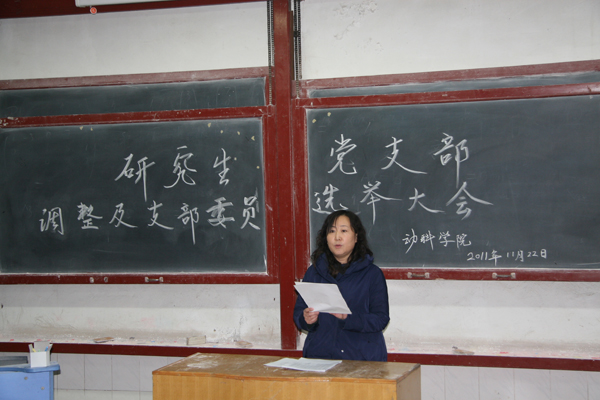 研究生党支部
调整及支部委员选举大会
动科学院
2011年11月22日